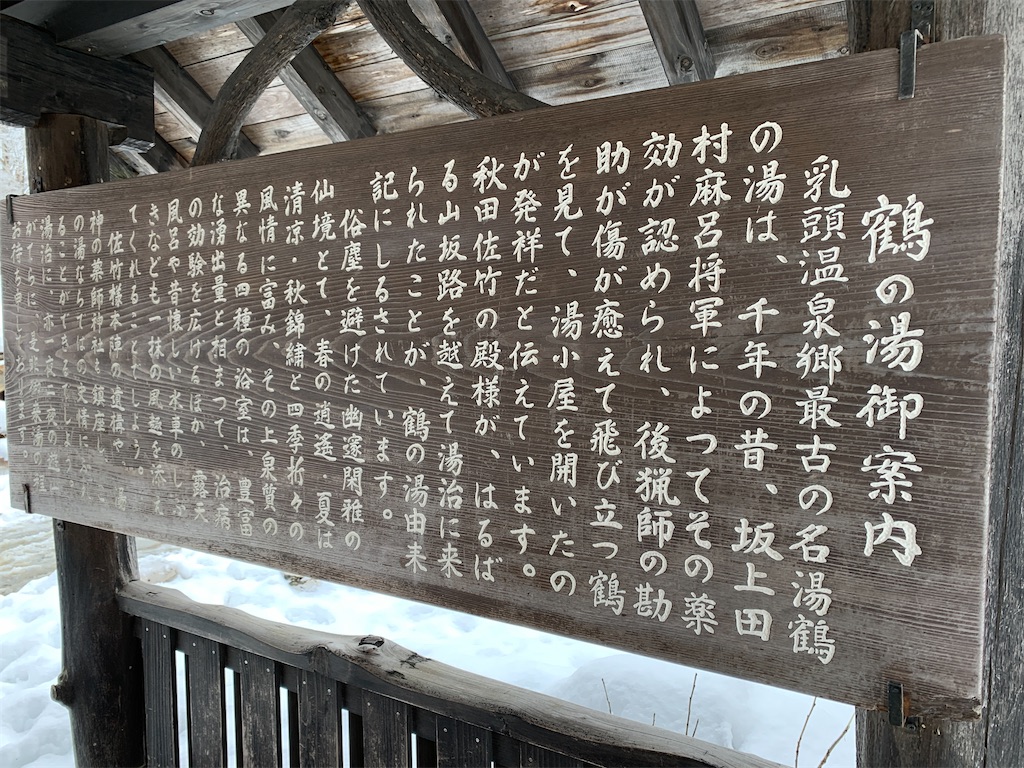 鶴の湯御案内
乳頭温泉郷最古の名湯鶴
の湯は、千年の昔、坂上田
村麻呂将軍によってその薬
効が認められ、後猟師の勘
助が傷が癒えて飛び立つ鶴
を見て、湯小屋を開いたの
が発祥だと伝えています。
秋田佐竹の殿様が、はるば
る山坂路を越えて湯治に来
られたことが、鶴の湯由来
記にしるされています。
俗塵を避けた幽邃閑雅の
仙境とて、春の逍遥・夏は
清凉・秋錦繍と四季折々の
風情に富み、その上泉質の
異なる四種の浴室は、豊富
な湧出量と相まつて、治病
の効験を広げるほか、露天
風呂や昔懐しい水車の
きなども一抹の風趣を添え
てくれることでしょう。
佐竹様本陣の遺構や、
神の薬師神社を鎮座
の湯ならではの
ることが
湯治に
お待ち